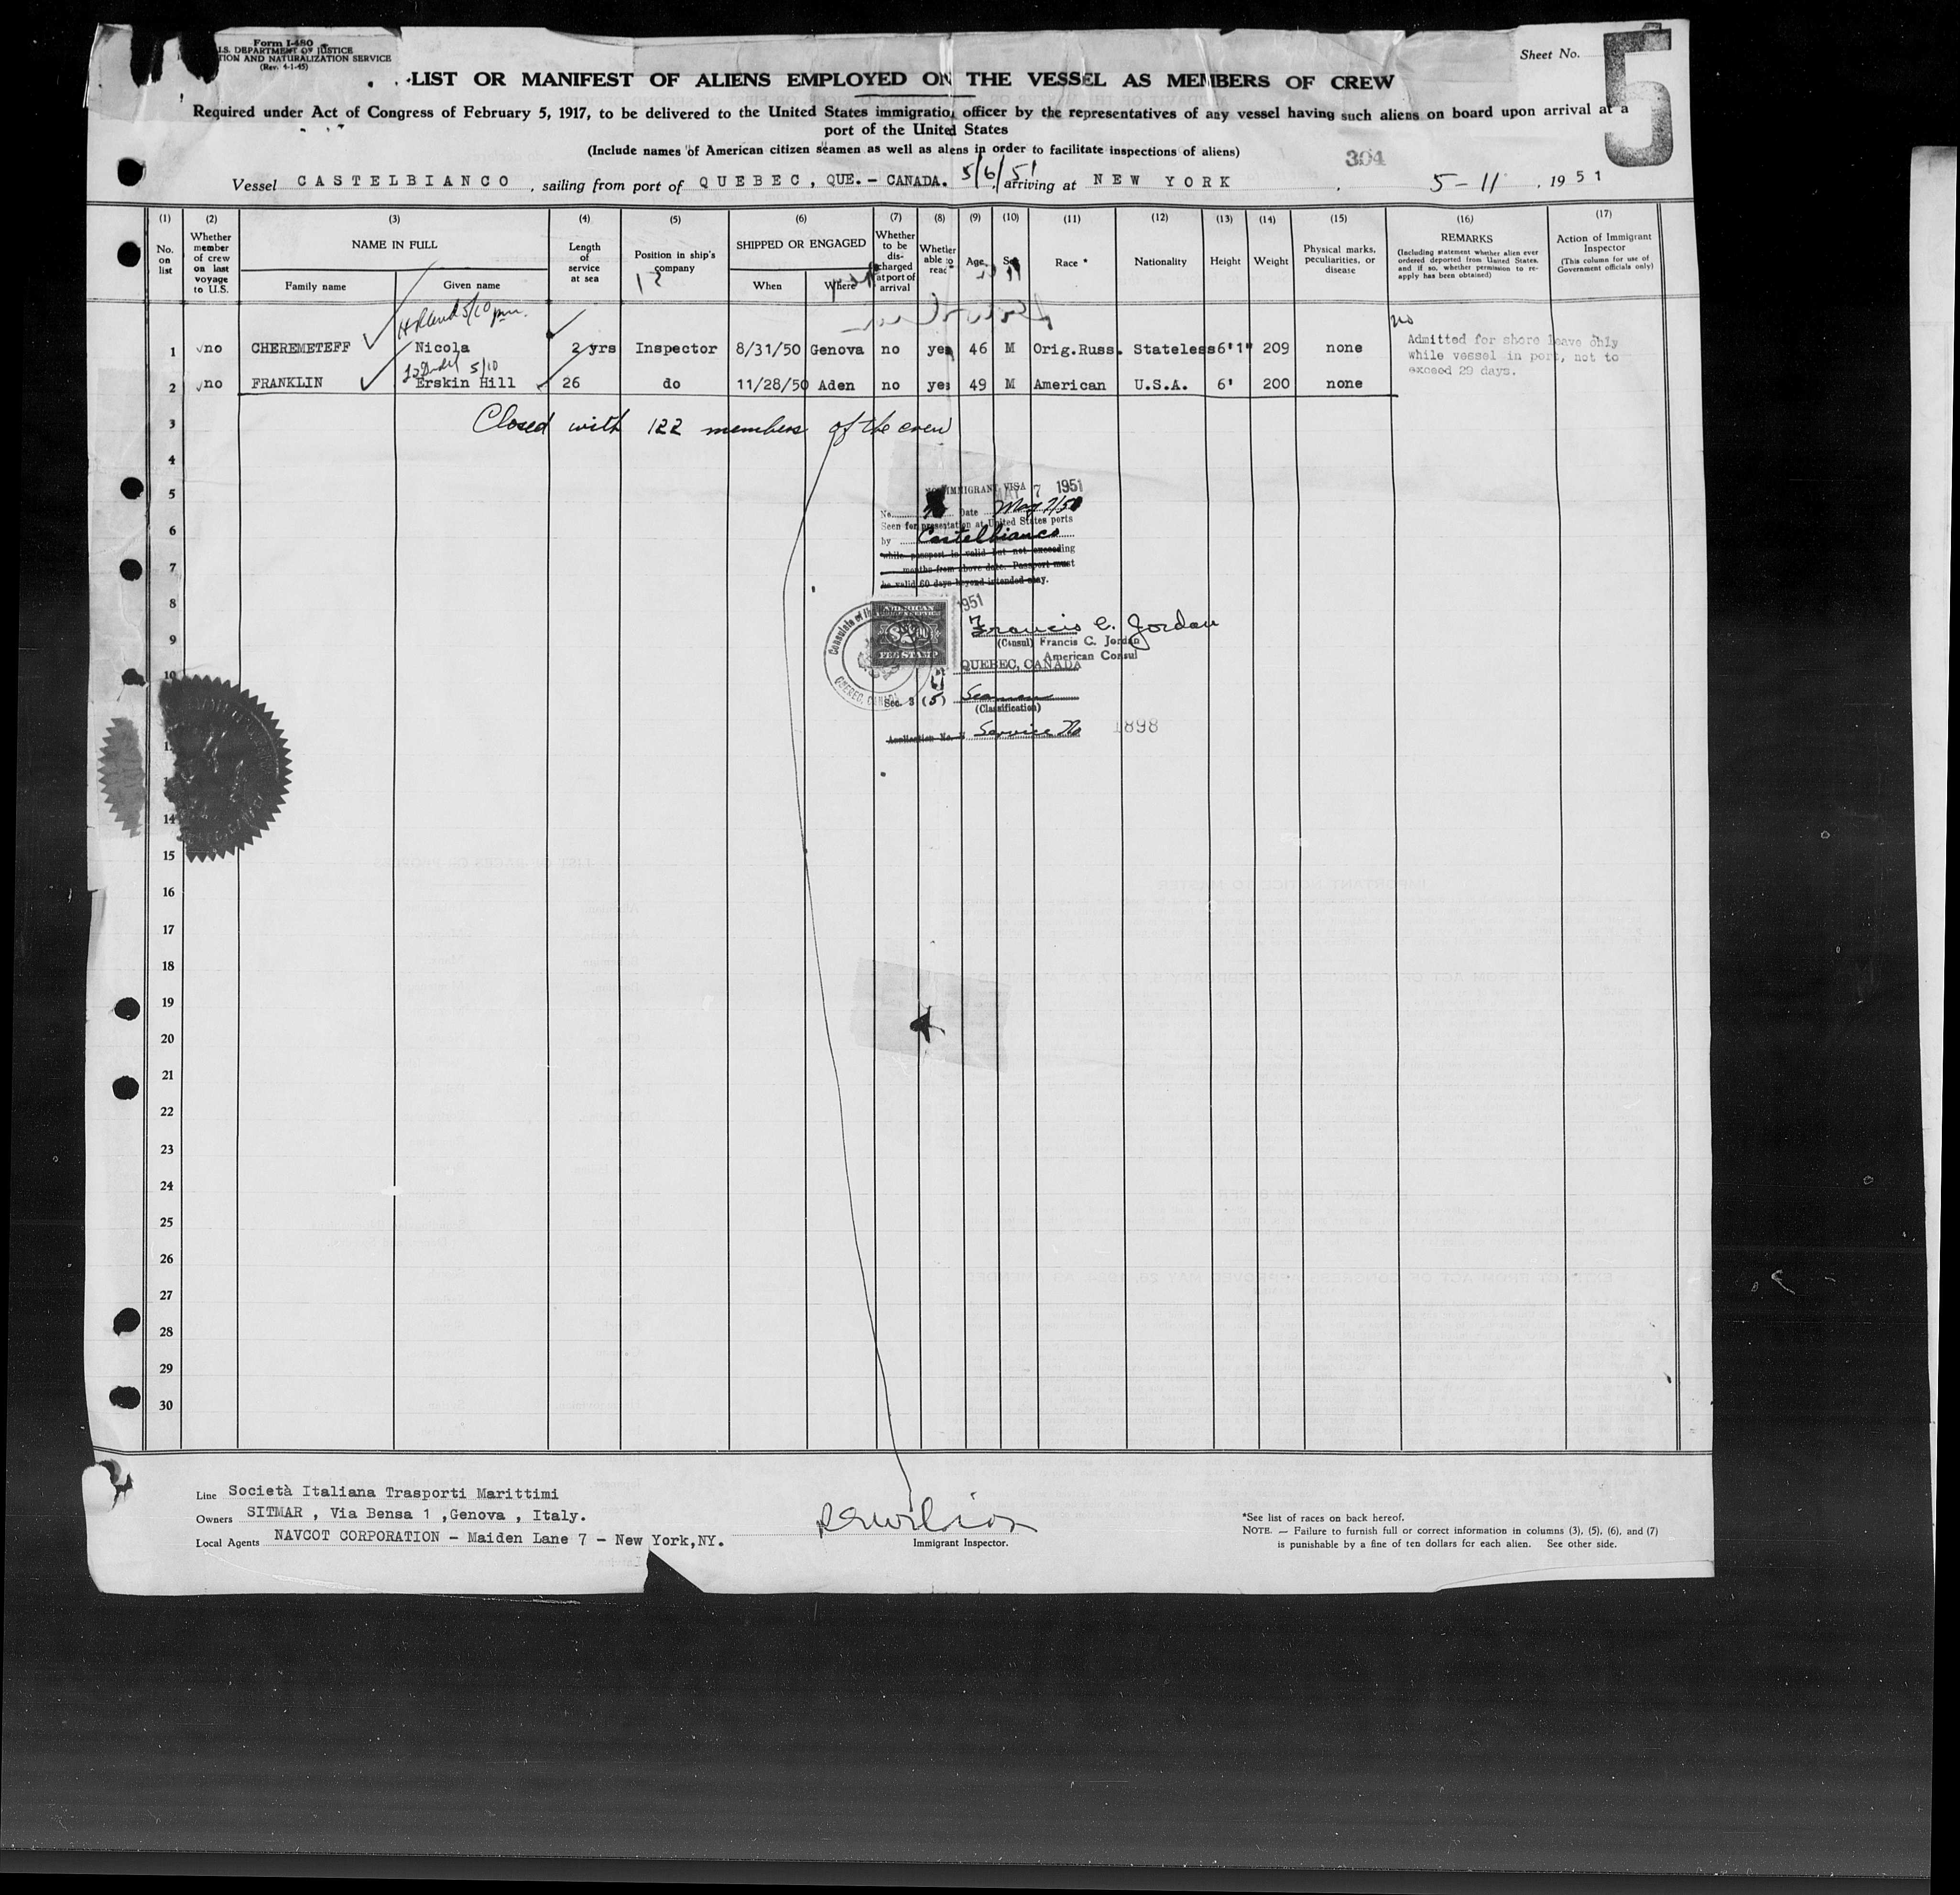 Form I-480
U.S. DEPARTMENT OF JUSTICE
TION AND NATURALIZATION SERVICE
(Rev. 4-1-45)
Sheet No. 5
LIST OR MANIFEST OF ALIENS EMPLOYED ON THE VESSEL AS MEMBERS OF CREW
Required under Act of Congress of February 5, 1917, to be delivered to the United States immigration officer by the representatives of any vessel having such aliens on board upon arrival at a
port of the United States
(Include names of American citizen seamen as well as aliens in order to facilitate inspections of aliens)
304
Vessel CASTELBIANCO, sailing from port of QUEBEC, QUE. - CANADA. 5/6/51, arriving at NEW YORK, 5-11, 1951
(1) (2) (3) (4) (5) (6) (7) (8) (9) (10) (11) (12) (13) (14) (15) (16) (17)
No. on list
Whether member of crew on last voyage to U.S.
NAME IN FULL
Family name
Given name
Length of service at sea
Position in ship's company
SHIPPED OR ENGAGED
When
Where
Whether to be discharged at port of arrival
Whether able to read
Age
Sex
Race *
Nationality
Height
Weight
Physical marks, peculiarities, or disease
REMARKS
(Including statement whether alien ever ordered deported from United States, and if so, whether permission to reapply has been obtained)
Action of Immigrant Inspector
(This column for use of Government officials only)
5/10 pm.
no
1 no CHEREMETEFF Nicola 2 yrs Inspector 8/31/50 Genova no yes 46 M Orig.Russ. Stateless 6'1" 209 none
Admitted for shore leave only
while vessel in port, not to
exceed 29 days.
5/10
2 no FRANKLIN Erskin Hill 26 do 11/28/50 Aden no yes 49 M American U.S.A. 6' 200 none
3
Closed with 122 members of the crew
4
5
6
7
8
9
10
14
15
16
17
18
19
20
21
22
23
24
25
26
27
28
29
30
NONIMMIGRANT VISA
MAY 7 1951
No. Date May 7/51
Seen for presentation at United States ports
by Castelbianco
while passport is valid but not exceeding
months from above date. Passport must
be valid 60 days beyond intended stay.
1951
AMERICAN
FEE STAMP
Consulate of the
QUEBEC, CANADA
Francis C. Jordan
(Consul) Francis C. Jordan
American Consul
QUEBEC, CANADA
Sec. 3 (5) Seamen
(Classification)
Application No. Service No 1898
Line Società Italiana Trasporti Marittimi
Owners SITMAR , Via Bensa 1 ,Genova , Italy.
Local Agents NAVCOT CORPORATION - Maiden Lane 7 - New York,NY.
Immigrant Inspector.
*See list of races on back hereof.
NOTE. — Failure to furnish full or correct information in columns (3), (5), (6), and (7)
is punishable by a fine of ten dollars for each alien. See other side.